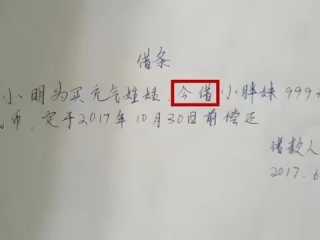 借条
小明为买充气娃娃,今借小胖妹999
币,定于2017年10月30日前偿还
借款人
2017.6